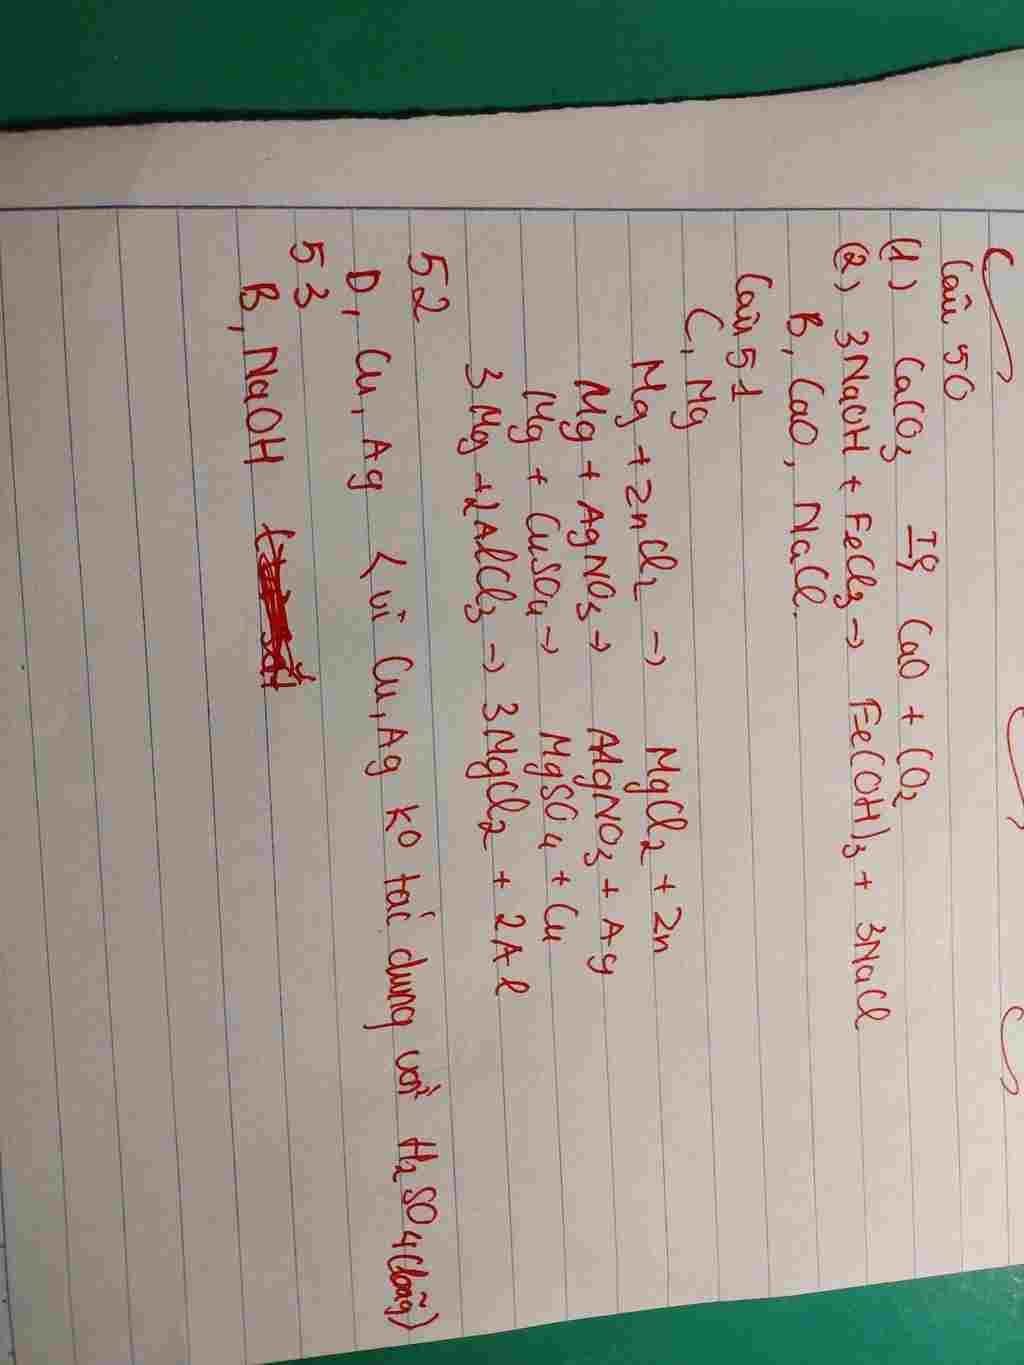 Câu 50
(1) CaCO3 T°→ CaO + CO2
(2) 3NaOH + FeCl3 → Fe(OH)3 + 3NaCl
B, CaO, NaCl.
Câu 51
C, Mg
Mg + ZnCl2 → MgCl2 + Zn
Mg + AgNO3 → AAgNO3 + Ag
Mg + CuSO4 → MgSO4 + Cu
3Mg + 2AlCl3 → 3MgCl2 + 2Al
52
D, Cu, Ag (vì Cu, Ag ko tác dụng với H2SO4 (loãng)
53
B, NaOH